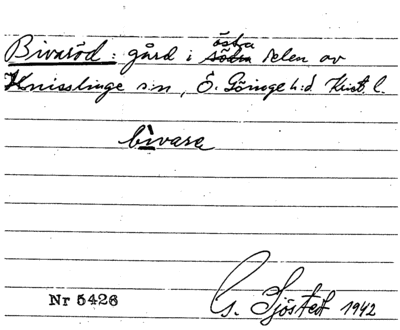 Bivaröd: gård i östra södra delen av
Knisslinge s:n, Ö. Göinge h:d Krist. l.
bivara
Nr 5426
G. Sjöstedt 1942